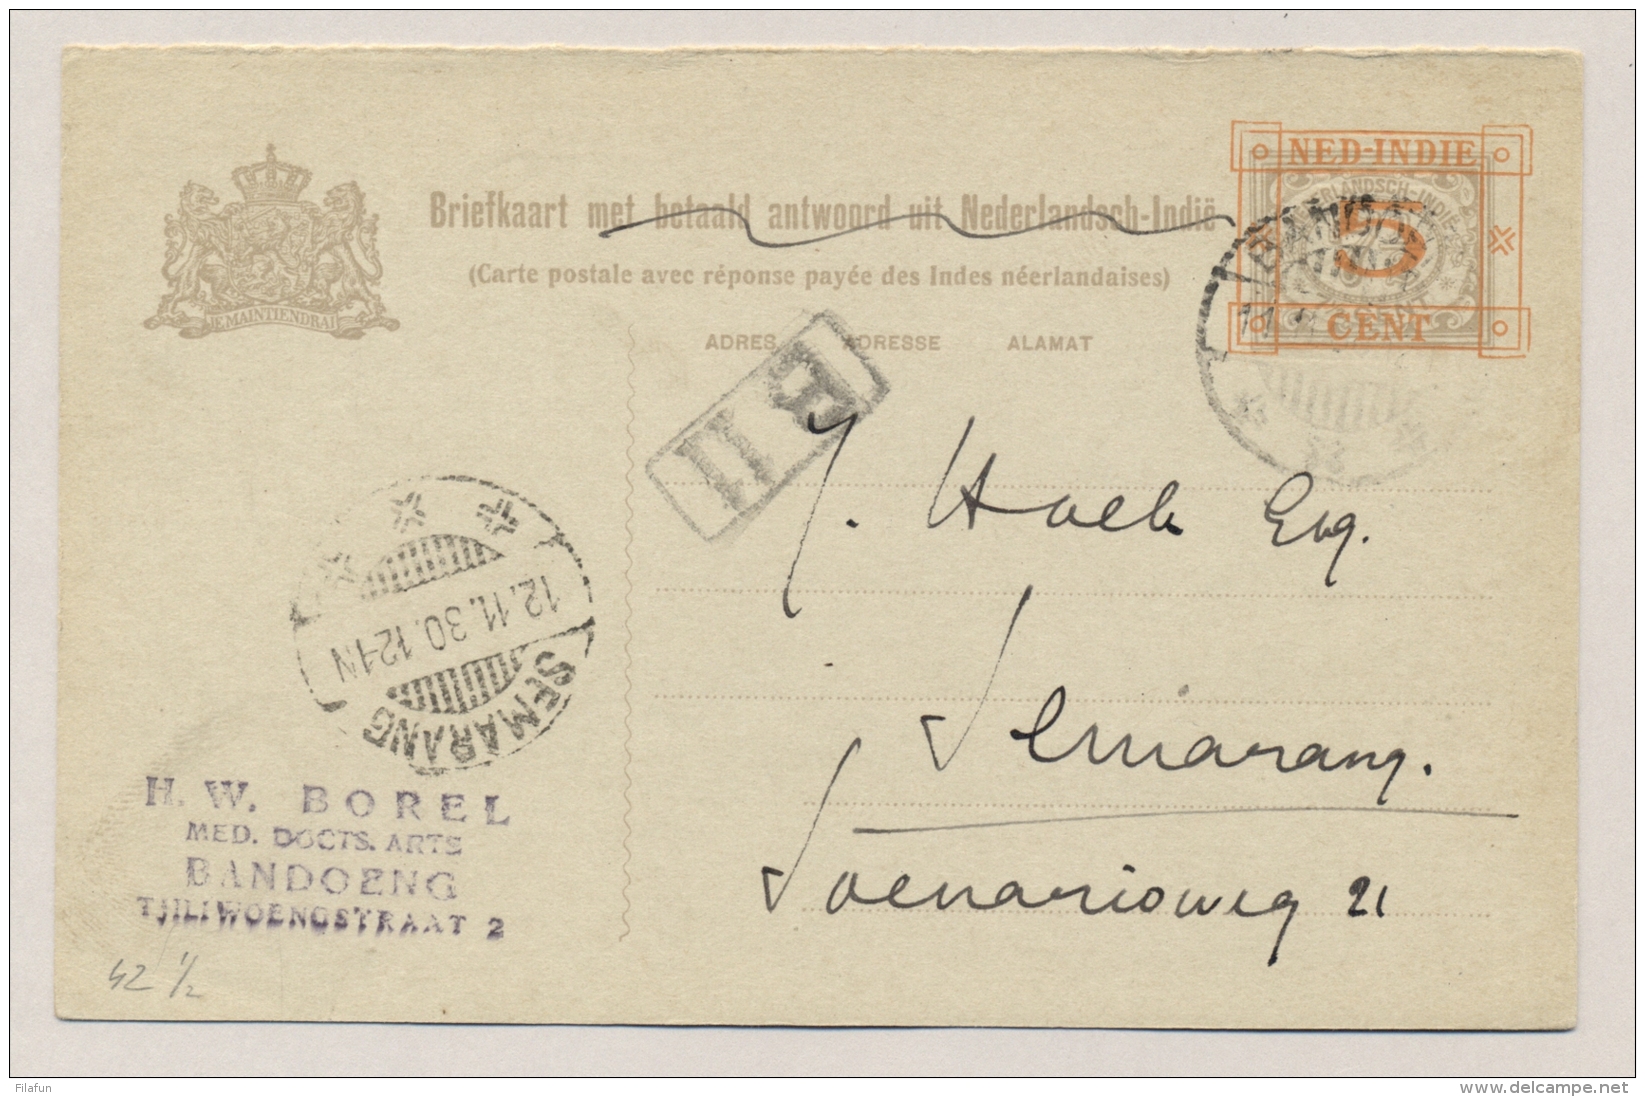 Briefkaart met betaald antwoord uit Nederlandsch-Indië
(Carte postale avec réponse payée des Indes néerlandaises)
JE MAINTIENDRAI
ADRES ADRESSE ALAMAT
NED-INDIE
5
CENT
BANDOENG
B II
J. Hoek Esq.
Semarang.
Soenarioweg 21
12.11.30.12-1N
SEMARANG
H. W. BOREL
MED. DOCTS. ARTS
BANDOENG
TJILIWOENGSTRAAT 2
42 1/2
Filafun
www.delcampe.net